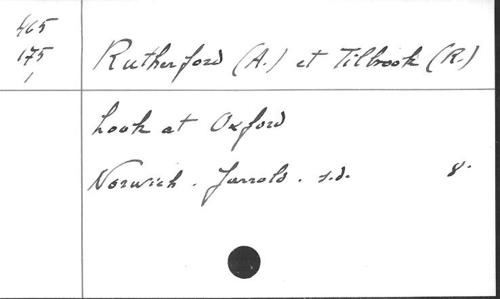 465
175
1
Rutherford (A.) et Tilbrook (R.)
Look at Oxford
Norwich. Jarrold. s.d. 8.